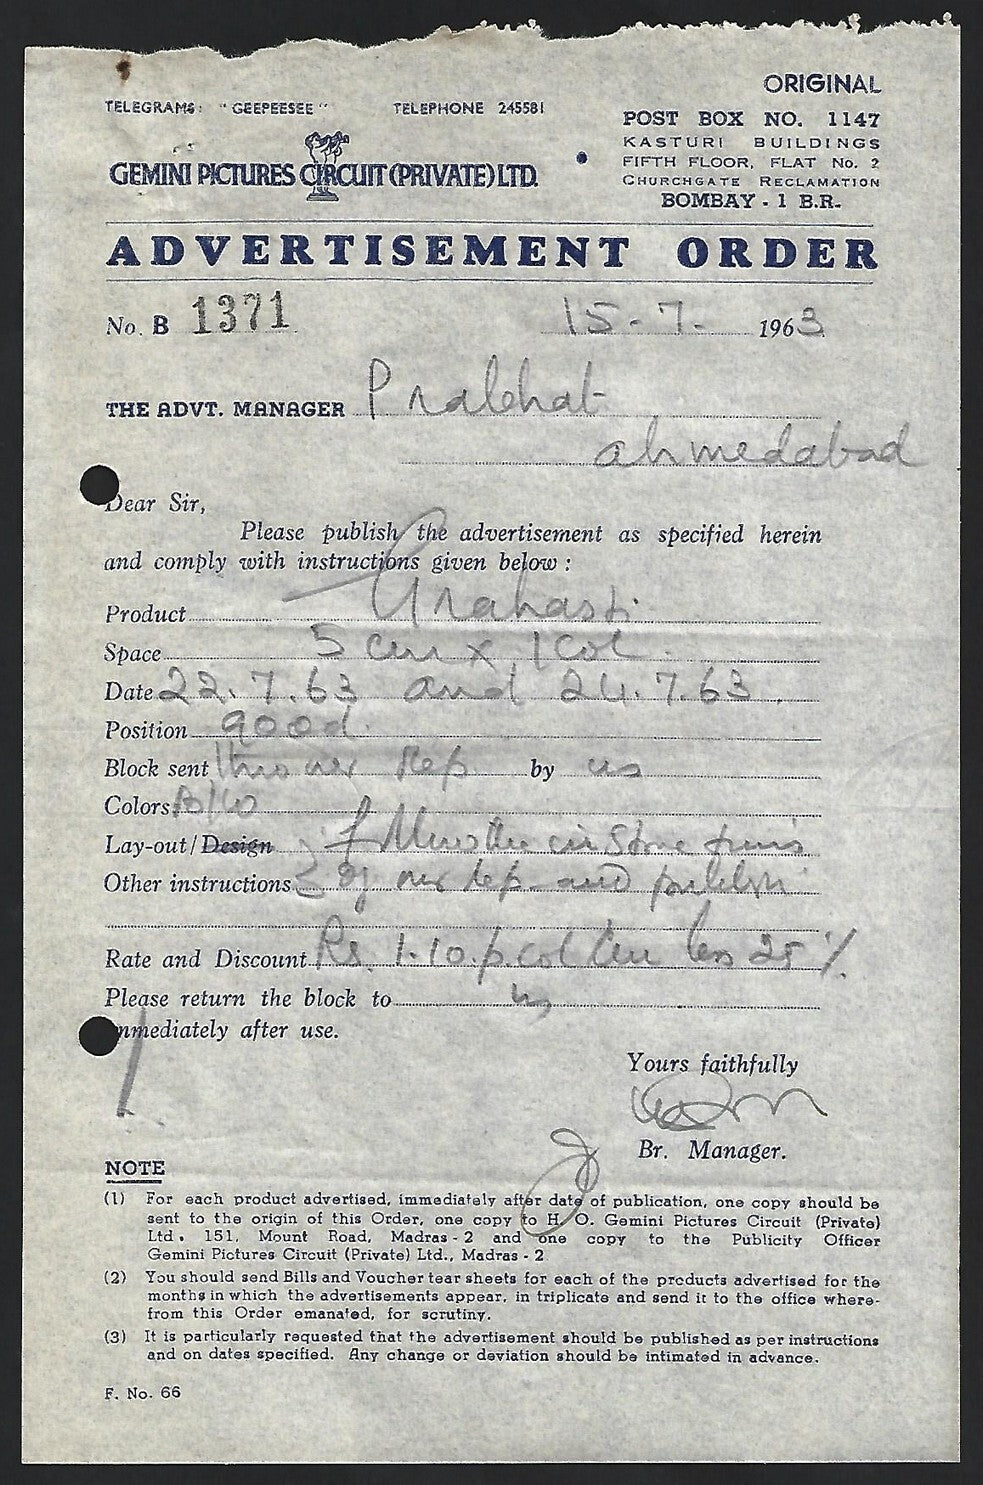 ORIGINAL
TELEGRAMS: "GEEPEESEE" TELEPHONE 245581
POST BOX NO. 1147
KASTURI BUILDINGS
FIFTH FLOOR, FLAT No. 2
CHURCHGATE RECLAMATION
BOMBAY - 1 B.R.
GEMINI PICTURES CIRCUIT (PRIVATE) LTD.
ADVERTISEMENT ORDER
No. B 1371 15-7- 1963
THE ADVT. MANAGER Prabhat
ahmedabad
Dear Sir,
Please publish the advertisement as specified herein
and comply with instructions given below :
Product Grahasti
Space 5 cm x 1 col.
Date 22.7.63 and 24.7.63
Position good.
Block sent thro our Rep by us
Colors B/W
Lay-out/Design
Other instructions our Rep and publish
Rate and Discount Rs. 1.10.p.col cm less 25 %
Please return the block to us
immediately after use.
Yours faithfully
Br. Manager.
NOTE
(1) For each product advertised, immediately after date of publication, one copy should be
sent to the origin of this Order, one copy to H. O. Gemini Pictures Circuit (Private)
Ltd. 151, Mount Road, Madras - 2 and one copy to the Publicity Officer
Gemini Pictures Circuit (Private) Ltd., Madras - 2
(2) You should send Bills and Voucher tear sheets for each of the products advertised for the
months in which the advertisements appear, in triplicate and send it to the office where-
from this Order emanated, for scrutiny.
(3) It is particularly requested that the advertisement should be published as per instructions
and on dates specified. Any change or deviation should be intimated in advance.
F. No. 66